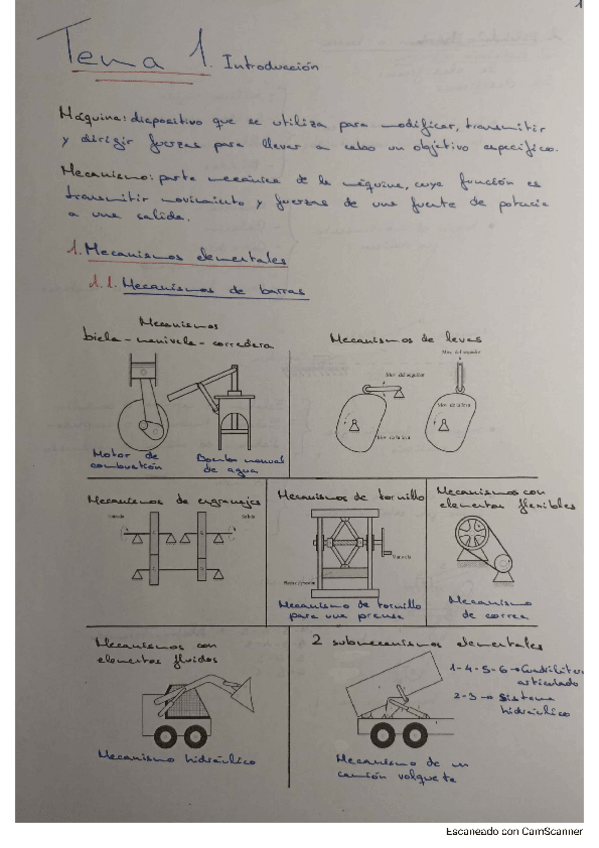 1
Tema 1. Introducción
Máquina: dispositivo que se utiliza para modificar, transmitir
y dirigir fuerzas para llevar a cabo un objetivo específico.
Mecanismo: parte mecánica de la máquina, cuya función es
transmitir movimiento y fuerzas de una fuente de potencia
a una salida.
1. Mecanismos elementales
1.1. Mecanismos de barras
Mecanismos
biela - manivela - corredera
Motor de
combustión
Bomba manual
de agua
Mecanismos de levas
Mov. del seguidor
Mov. de la leva
Mov. del seguidor
Mov. de la leva
Mecanismos de engranajes
Entrada
Salida
Mecanismos de tornillo
Manivela
Mecanismo de tornillo
para una prensa
Mecanismos con
elementos flexibles
Mecanismo
de correa
Mecanismos con
elementos fluidos
Mecanismo hidráulico
2 submecanismos elementales
1-4-5-6 → Cuadrilátero
articulado
2-3 → Sistema
hidráulico
Mecanismo de un
camión volquete
Escaneado con CamScanner